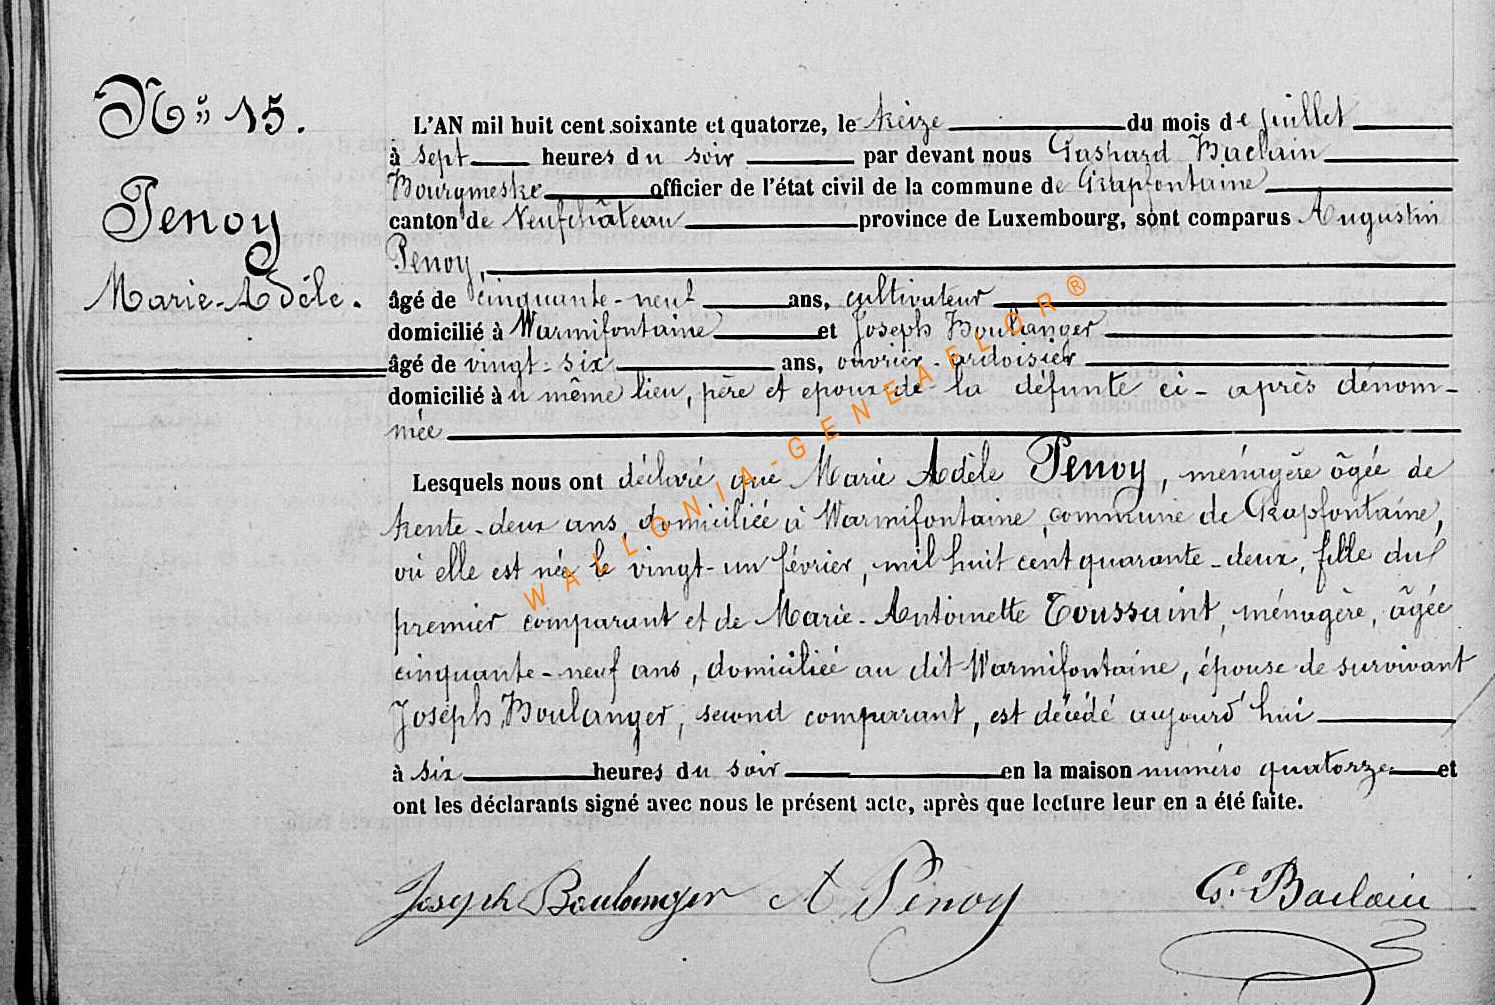 N° 15.
Penoy
Marie-Adèle.
L'AN mil huit cent soixante et quatorze, le treize du mois de juillet
à sept heures du soir par devant nous Gaspard Baclain
Bourgmestre officier de l'état civil de la commune de Grapfontaine
canton de Neufchâteau province de Luxembourg, sont comparus Augustin
Penoy,
âgé de cinquante-neuf ans, cultivateur
domicilié à Warmifontaine et Joseph Boulanger
âgé de vingt-six ans, ouvrier-ardoisier
domicilié au même lieu, père et epoux de la défunte ci-après dénom-
mée
Lesquels nous ont déclaré que Marie Adèle Penoy, ménagère âgée de
trente-deux ans, domiciliée à Warmifontaine commune de Grapfontaine,
où elle est née le vingt-un février, mil huit cent quarante-deux, fille du
premier comparant et de Marie-Antoinette Toussaint, ménagère, âgée
cinquante-neuf ans, domiciliée au dit Warmifontaine, épouse de survivant
Joseph Boulanger, second comparant, est décédé aujourd'hui
à six heures du soir en la maison numéro quatorze et
ont les déclarants signé avec nous le présent acte, après que lecture leur en a été faite.
Joseph Boulanger A Penoy G. Baclain
WALLONIA-GENEAFLOR®